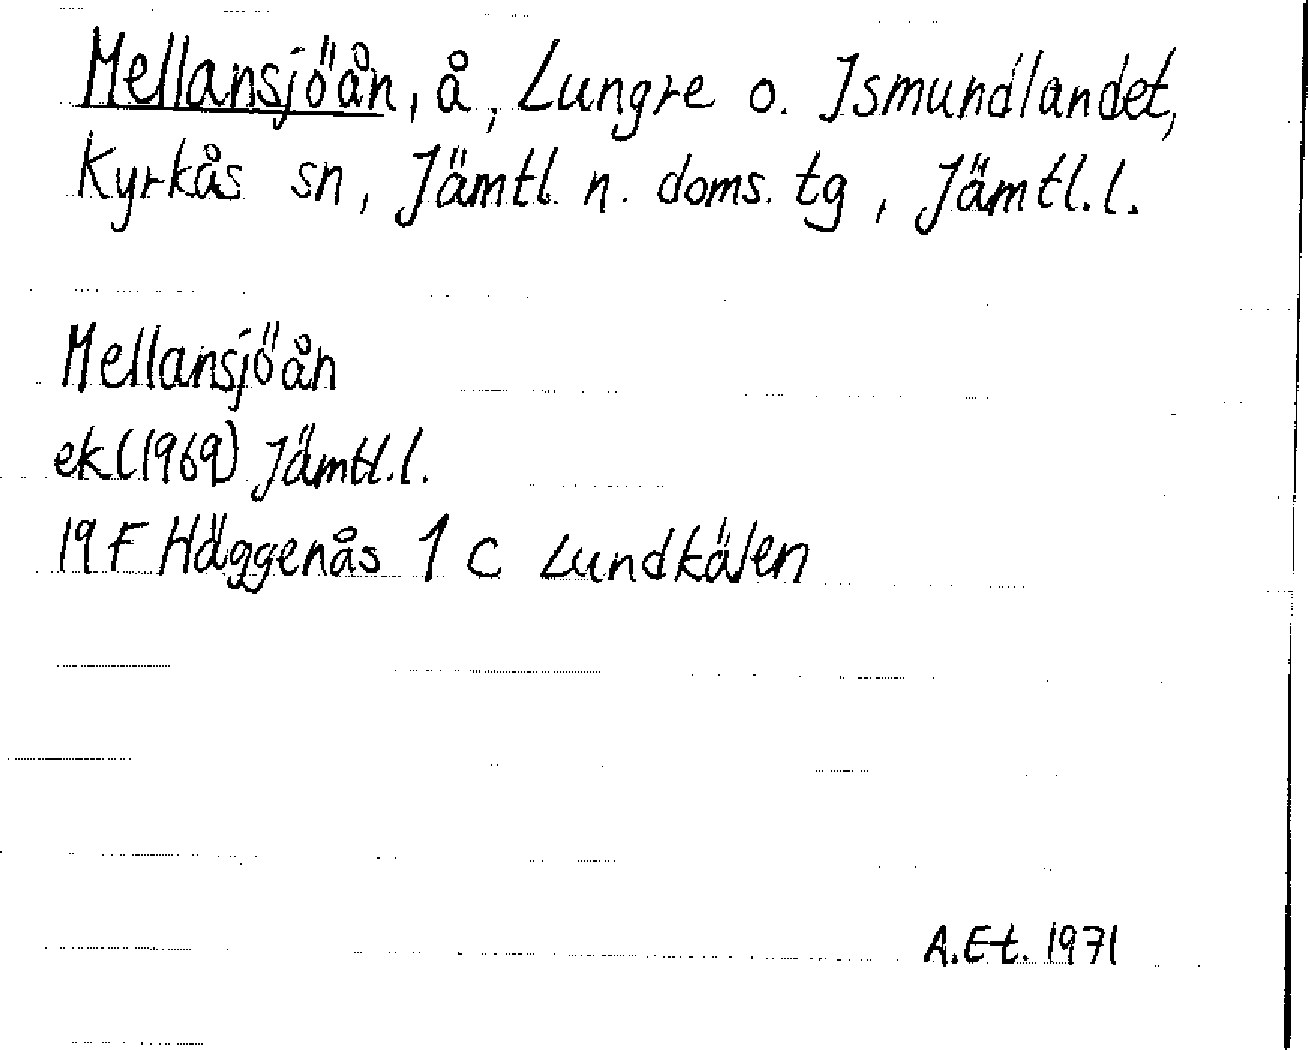 Mellansjöån, å, Lungre o. Ismundlandet,
Kyrkås sn, Jämtl. n. doms. tg, Jämtl. l.
Mellansjöån
ek (1969) Jämtl. l.
19 F Häggenås 1 c Lundkälen
A.E-t. 1971